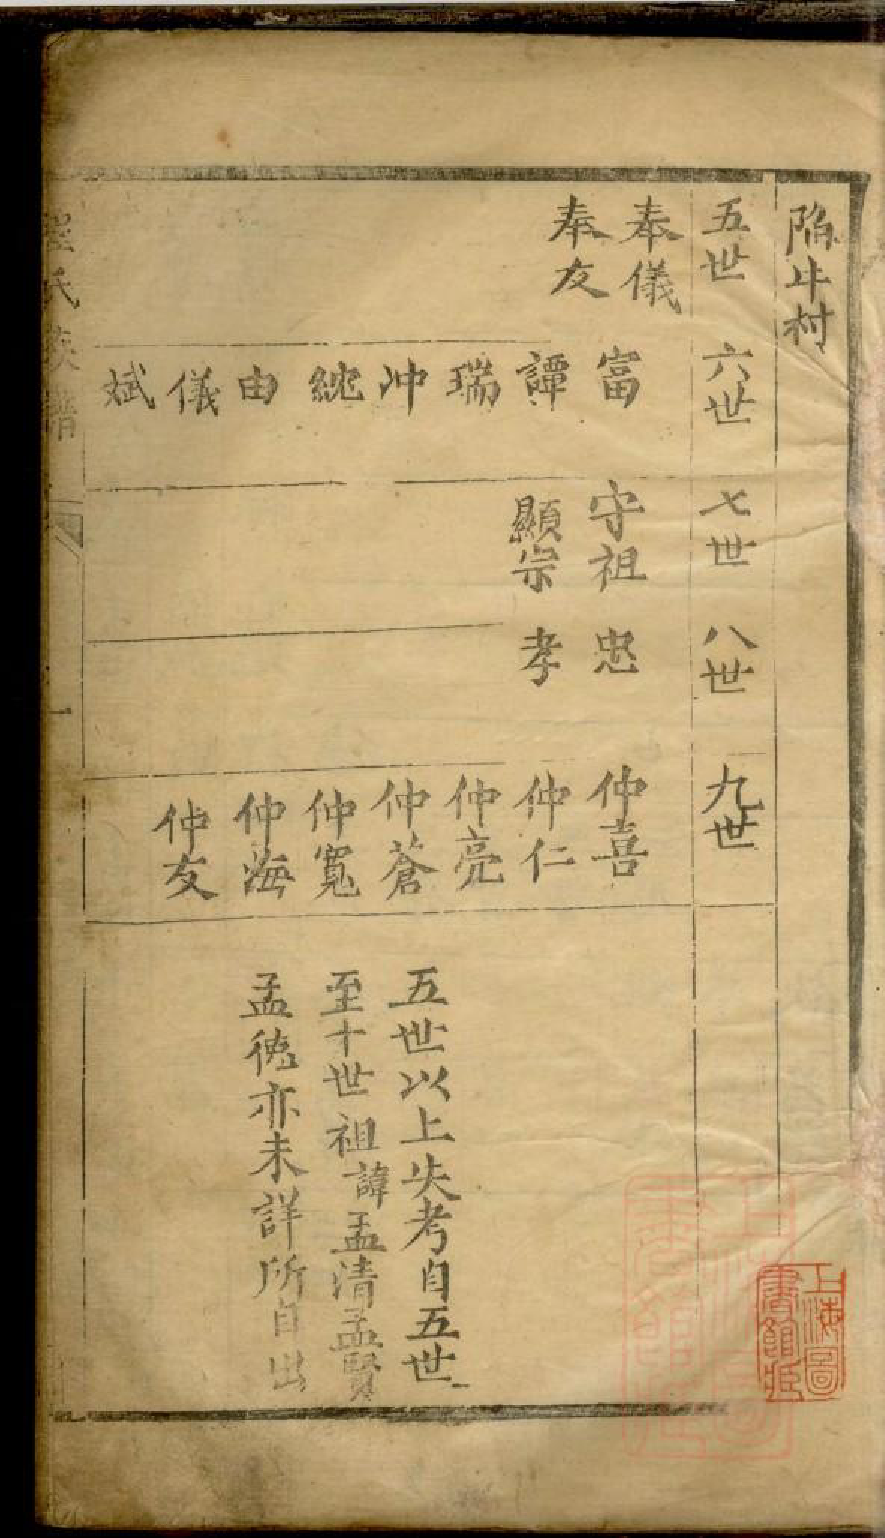 陷牛村
五世 六世 七世 八世 九世
奉儀 富 守祖 忠 仲喜
奉友 譚 顯宗 孝 仁仲
瑞 仲亮
冲 仲蒼
統 仲寬
由 仲海
儀 仲友
斌
五世以上失考自五世
至十世祖諱孟清孟賢
孟德亦未詳所自出
氏族譜
一
上海圖書館藏